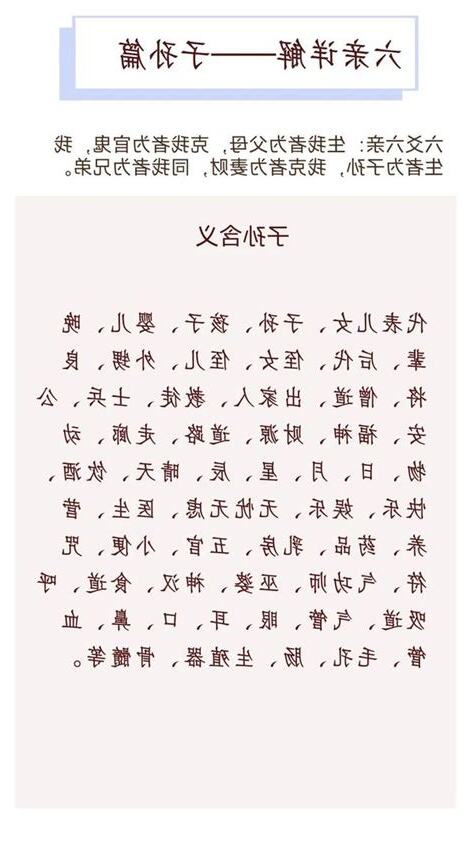 六亲详解——子孙篇
六爻六亲：生我者为父母，克我者为官鬼，我
生者为子孙，我克者为妻财，同我者为兄弟。
子孙含义
代表儿女、子孙、孩子、婴儿、晚
辈、后代、侄女、侄儿、外甥、良
将、僧道、出家人、教徒、士兵、公
安、福神、财源、道路、走廊、动
物、日、月、星、辰、晴天、饮酒、
快乐、娱乐、无忧无虑、医生、营
养、药品、乳房、五官、小便、咒
符、气功师、巫婆、神汉、食道、呼
吸道、气管、眼、耳、口、鼻、血
管、毛孔、肠、生殖器、骨髓等。